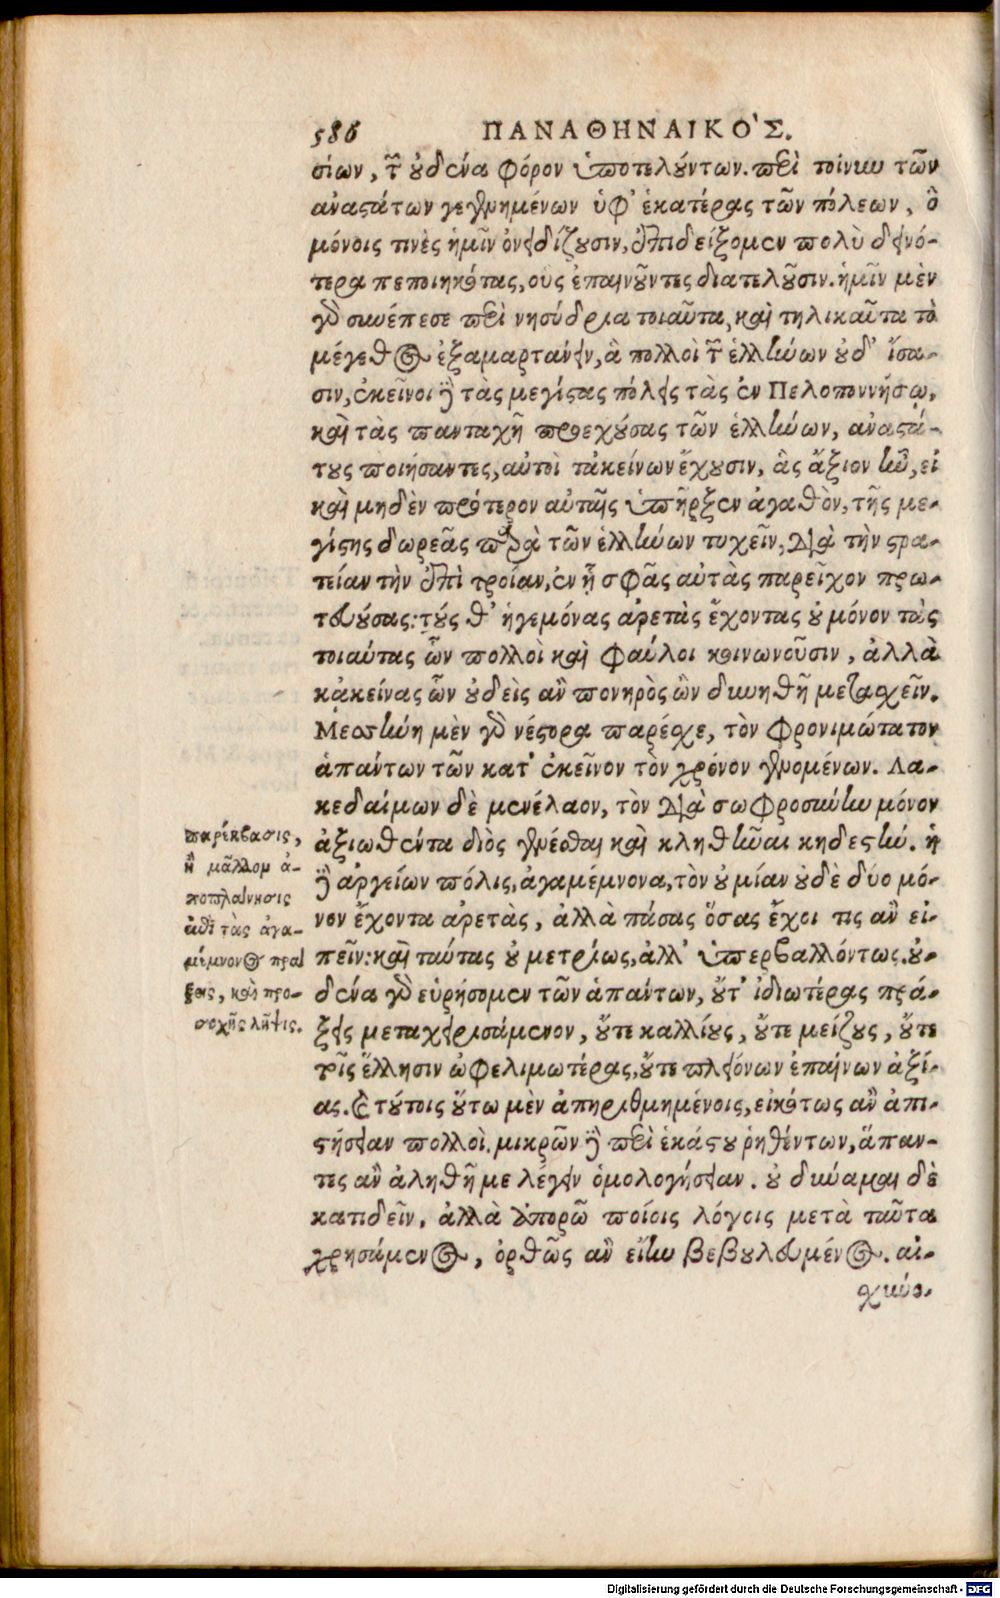 586 ΠΑΝΑΘΗΝΑΙΚΟ'Σ.
σίων, τ̃ ȣδένα φόρον ὑποτελȣ́ντων. περὶ τοίνυν τῶν
ἀναστάτων γεγενημένων ὑφ' ἑκατέρας τῶν πόλεων, ὃ
μόνοις τινὲς ἡμῖν ὀνειδίζȣσιν, ἐπιδείξομεν πολὺ δεινό-
τερα πεποιηκότας, οὓς ἐπαινȣ͂ντες διατελȣ͂σιν. ἡμῖν μὲν
γὸ συνέπεσε περὶ νησύδρια τοιαῦτα, καὶ τηλικαῦτα τὸ
μέγεθος ἐξαμαρτάνειν, ἃ πολλοὶ τ̃ ἑλλήνων ȣδ' ἴσα-
σιν, ἐκεῖνοι ὃ τὰς μεγίστας πόλεις τὰς ἐν Πελοποννήσῳ,
καὶ τὰς πανταχῆ προεχȣ́σας τῶν ἑλλήνων, ἀναστά-
τȣς ποιήσαντες, αὐτοὶ τἀκείνων ἔχȣσιν, ἃς ἄξιον ἦν, εἰ
καὶ μηδὲν πρότερον αὐταῖς ὑπῆρξεν ἀγαθὸν, τῆς με-
γίστης δωρεᾶς παρὰ τῶν ἑλλήνων τυχεῖν, διὰ τὴν στρα-
τείαν τὴν ἐπὶ τροίαν, ἐν ᾗ σφᾶς αὐτὰς παρεῖχον πρω-
τευȣ́σας: τȣ́ς θ' ἡγεμόνας ἀρετὰς ἔχοντας ȣ μόνον τὰς
τοιαύτας ὧν πολλοὶ καὶ φαύλοι κοινωνοῦσιν, ἀλλὰ
κἀκείνας ὧν ȣδεὶς ἂν πονηρὸς ὢν δυνηθῆ μετασχεῖν.
Μεσσήνη μὲν γὸ νέστορα παρέσχε, τὸν φρονιμώτατον
ἁπάντων τῶν κατ' ἐκεῖνον τὸν χρόνον γενομένων. Λα-
κεδαίμων δὲ μενέλαον, τὸν διὰ σωφροσύνην μόνον
ἀξιωθέντα διὸς γενέσθαι καὶ κληθῆναι κηδεστήν. ἡ
ὃ ἀργείων πόλις, ἀγαμέμνονα, τὸν ȣ μίαν ȣδὲ δύο μό-
νον ἔχοντα ἀρετὰς, ἀλλὰ πάσας ὅσας ἔχοι τις ἂν εἰ-
πεῖν: καὶ ταύτας ȣ μετρίως, ἀλλ' ὑπερβαλλόντως. ȣ-
δένα γὸ εὑρήσομεν τῶν ἁπάντων, ȣ́τ' ἰδιωτέρας πρά-
ξεις μεταχειρισάμενον, ȣ́τε καλλίȣς, ȣ́τε μείζȣς, ȣ́τε
τοῖς ἕλλησιν ὠφελιμωτέρας, ȣ́τε πλειόνων ἐπαίνων ἀξί-
ας. καὶ τȣ́τοις ȣ́τω μὲν ἀπηριθμημένοις, εἰκότως ἂν ἀπι-
στήσειαν πολλοὶ. μικρῶν ὃ περὶ ἑκάστȣ ῥηθέντων, ἅπαν-
τες ἂν ἀληθῆ με λέγειν ὁμολογήσειαν. ȣ δύναμαι δὲ
κατιδεῖν, ἀλλὰ ἀπορῶ ποίοις λόγοις μετὰ ταῦτα
χρησάμενος, ὀρθῶς ἂν εἴην βεβȣλευμένος. αἰ-
σχύο-
παρέκβασις,
ἢ μᾶλλον ἀ-
ποπλάνησις
ἐπὶ τὰς ἀγα-
μέμνονος πρά
ξεις, καὶ προ-
σοχῆς λῆψις.
Digitalisierung gefördert durch die Deutsche Forschungsgemeinschaft - DFG